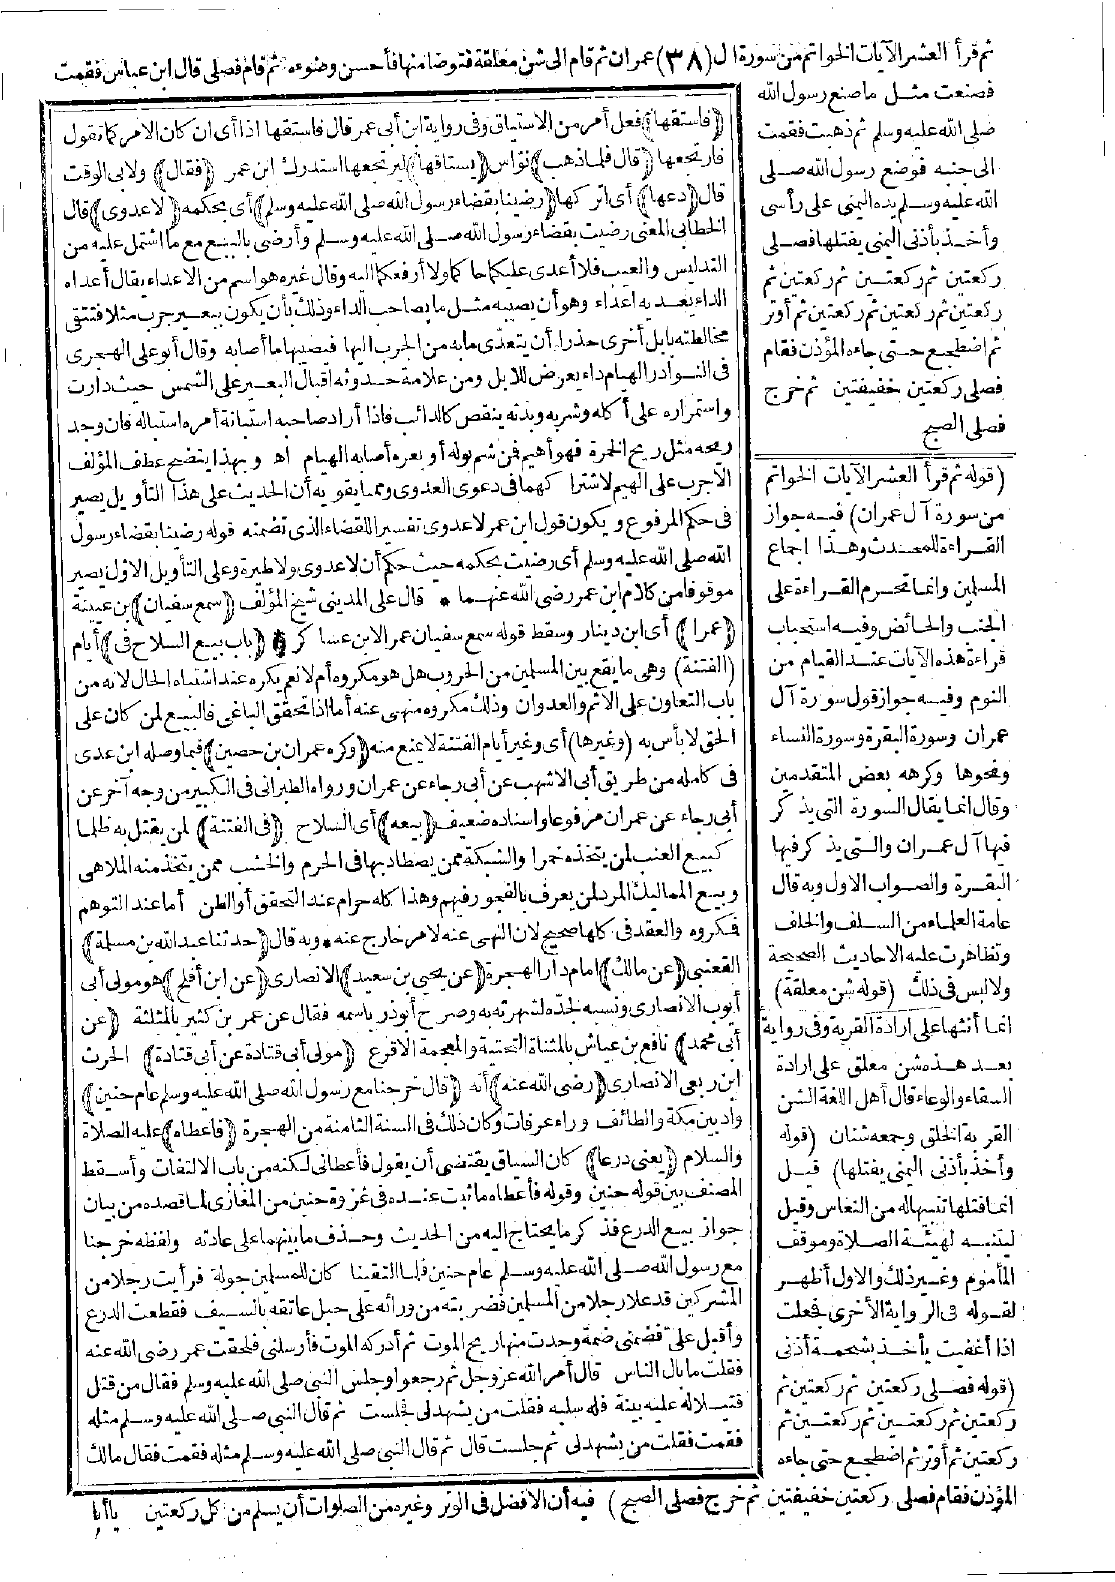 ثم قرأ العشر الآيات الخواتم من سورة ال (٣٨) عمران ثم قام الى شن معلقة فتوضأ منها فأحسن وضوءه ثم قام فصلى قال ابن عباس فقمت
فصنعت مثل ما صنع رسول الله
صلى الله عليه وسلم ثم ذهبت فقمت
الى جنبه فوضع رسول الله صلى
الله عليه وسلم يده اليمنى على رأسى
وأخذ بأذنى اليمنى يفتلها فصلى
ركعتين ثم ركعتين ثم ركعتين ثم
ركعتين ثم ركعتين ثم ركعتين ثم أوتر
ثم اضطجع حتى جاءه المؤذن فقام
فصلى ركعتين خفيفتين ثم خرج
فصلى الصبح
(قوله ثم قرأ العشر الآيات الخواتم
من سورة آل عمران) فيه جواز
القراءة للمحدث وهذا اجماع
المسلمين وانما تحرم القراءة على
الجنب والحائض وفيه استحباب
قراءة هذه الآيات عند القيام من
النوم وفيه جواز قول سورة آل
عمران وسورة البقرة وسورة النساء
ونحوها وكرهه بعض المتقدمين
وقال انما يقال السورة التى يذكر
فيها آل عمران والتى يذكر فيها
البقرة والصواب الاول وبه قال
عامة العلماء من السلف والخلف
وتظاهرت عليه الاحاديث الصحيحة
ولا لبس فى ذلك (قوله شن معلقة)
انما أنثها على ارادة القربة وفى رواية
بعد هذه شن معلق على ارادة
السقاء والوعاء قال أهل اللغة الشن
القربة الخلق وجمعه شنان (قوله
وأخذ بأذنى اليمنى يفتلها) قيل
انما فتلها تنبيها له من النعاس وقيل
ليتنبه لهيئة الصلاة وموقف
المأموم وغير ذلك والاول أظهر
لقوله فى الرواية الأخرى فجعلت
اذا أغفيت يأخذ بشحمة أذنى
(قوله فصلى ركعتين ثم ركعتين ثم
ركعتين ثم ركعتين ثم ركعتين ثم
ركعتين ثم أوتر ثم اضطجع حتى جاءه
المؤذن فقام فصلى ركعتين خفيفتين ثم خرج فصلى الصبح) فيه أن الافضل فى الوتر وغيره من الصلوات أن يسلم من كل ركعتين
(فاستقها) فعل أمر من الاستياق وفى رواية ابن أبى عمر قال فاستقها اذا أى ان كان الامر كما تقول
فارتجعها (قال فلما ذهب) نوّاس (يستاقها) ليرتجعها استدرك ابن عمر (فقال) ولابى الوقت
قال (دعها) أى اتركها (رضينا بقضاء رسول الله صلى الله عليه وسلم) أى بحكمه (لا عدوى) قال
الخطابى المعنى رضيت بقضاء رسول الله صلى الله عليه وسلم وأرضى بالبيع مع ما اشتمل عليه من
التدليس والعيب فلا أعدى عليكما حاكما ولا أرفعكما اليه وقال غيره هو اسم من الاعداء يقال أعداه
الداء يعديه اعداء وهو أن يصيبه مثل ما بصاحب الداء وذلك بأن يكون ببعير جرب مثلا فتتقى
مخالطته بابل أخرى حذرا أن يتعدّى ما به من الجرب اليها فيصيبها ما أصابه وقال أبو على الهجرى
فى النوادر الهيام داء يعرض للابل ومن علامة حدوثه اقبال البعير على الشمس حيث دارت
واستمراره على أكله وشربه وبدنه ينقص كالذائب فاذا أراد صاحبه استبانة أمره استباله فان وجد
ريحه مثل ريح الخمرة فهو أهيم فمن شم بوله أو بعره أصابه الهيام اه وبهذا يتضح عطف المؤلف
الأجرب على الهيم لاشتراكهما فى دعوى العدوى ومما يقويه أن الحديث على هذا التأويل يصير
فى حكم المرفوع ويكون قول ابن عمر لا عدوى تفسيرا للقضاء الذى تضمنه قوله رضينا بقضاء رسول
الله صلى الله عليه وسلم أى رضيت بحكمه حيث حكم أن لا عدوى ولا طيرة وعلى التأويل الاوّل يصير
موقوفا من كلام ابن عمر رضى الله عنهما * قال على المدينى شيخ المؤلف (سمع سفيان) بن عيينة
(عمرا) أى ابن دينار وسقط قوله سمع سفيان عمرا لابن عساكر * (باب بيع السلاح فى) أيام
(الفتنة) وهى ما يقع بين المسلمين من الحروب هل هو مكروه أم لا نعم يكره عند اشتباه الحال لانه من
باب التعاون على الاثم والعدوان وذلك مكروه منهى عنه أما اذا تحقق الباغى فالبيع لمن كان على
الحق لا بأس به (وغيرها) أى وغير أيام الفتنة لا يمنع منه (وكره عمران بن حصين) فيما وصله ابن عدى
فى كامله من طريق أبى الاشهب عن أبى رجاء عن عمران ورواه الطبرانى فى الكبير من وجه آخر عن
أبى رجاء عن عمران مرفوعا واسناده ضعيف (بيعه) أى السلاح (فى الفتنة) لمن يقتل به ظلما
كبيع العنب لمن يتخذه خمرا والشبكة ممن يصطاد بها فى الحرم والخشب ممن يتخذ منه الملاهى
وبيع المماليك المرد لمن يعرف بالفجور فيهم وهذا كله حرام عند التحقق أو الظن أما عند التوهم
فمكروه والعقد فى كلها صحيح لان النهى عنه لامر خارج عنه * وبه قال (حدثنا عبد الله بن مسلمة)
القعنبى (عن مالك) امام دار الهجرة (عن يحيى بن سعيد) الانصارى (عن ابن أفلح) هو مولى أبى
أيوب الانصارى ونسبه لجدّه لشهرته به وصرح أبو ذر باسمه فقال عن عمر بن كثير بالمثلثة (عن
أبى محمد) نافع بن عياش بالمثناة التحتية والمعجمة الاقرع (مولى أبى قتادة عن أبى قتادة) الحرث
ابن ربعى الانصارى (رضى الله عنه) أنه (قال خرجنا مع رسول الله صلى الله عليه وسلم عام حنين)
واد بين مكة والطائف وراء عرفات وكان ذلك فى السنة الثامنة من الهجرة (فاعطاه) عليه الصلاة
والسلام (يعنى درعا) كان السياق يقتضى أن يقول فأعطانى لكنه من باب الالتفات وأسقط
المصنف بين قوله حنين وقوله فأعطاه ما ثبت عنده فى غزوة حنين من المغازى لما قصده من بيان
جواز بيع الدرع فذكر ما يحتاج اليه من الحديث وحذف ما بينهما على عادته ولفظه خرجنا
مع رسول الله صلى الله عليه وسلم عام حنين فلما التقينا كان للمسلمين جولة فرأيت رجلا من
المشركين قد علا رجلا من المسلمين فضربته من ورائه على حبل عاتقه بالسيف فقطعت الدرع
وأقبل علىّ فضمنى ضمة وجدت منها ريح الموت ثم أدركه الموت فأرسلنى فلحقت عمر رضى الله عنه
فقلت ما بال الناس قال أمر الله عز وجل ثم رجعوا وجلس النبى صلى الله عليه وسلم فقال من قتل
قتيلا له عليه بينة فله سلبه فقلت من يشهد لى فجلست ثم قال النبى صلى الله عليه وسلم مثله
فقمت فقلت من يشهد لى ثم جلست قال ثم قال النبى صلى الله عليه وسلم مثله فقمت فقال مالك
يا أبا